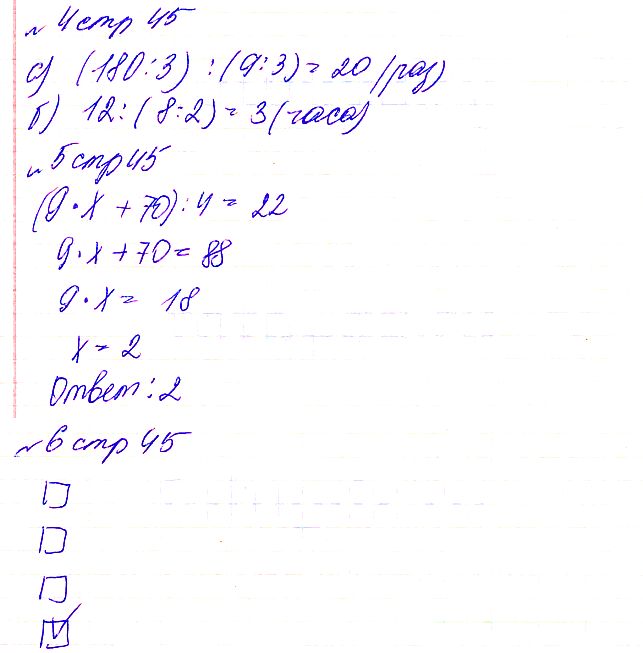 № 4 стр 45
а) (180:3) : (9:3) = 20 (раз)
б) 12:(8:2) = 3 (часа)
№ 5 стр 45
(9·х + 70):4 = 22
9·х + 70 = 88
9·х = 18
х = 2
Ответ: 2
№ 6 стр 45